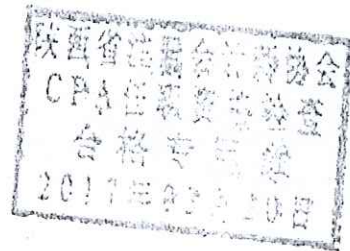 陕西省注册会计师协会
CPA任职资格检查
合格专用章
2011年 月 0日